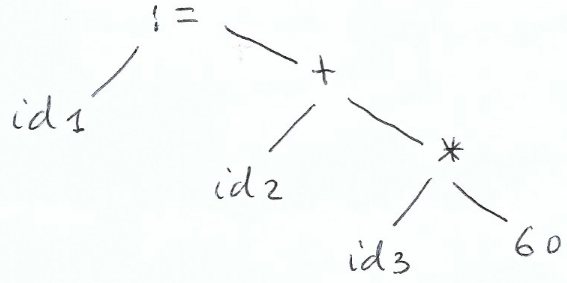 :=
+
id1
*
id2
id3
60